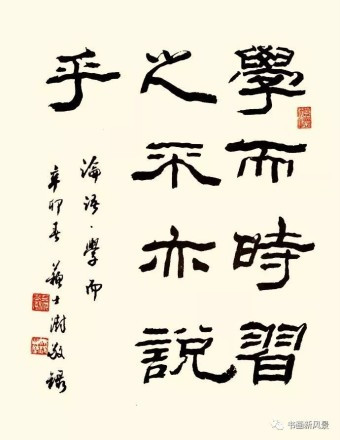 學而時習
之不亦說
乎
論語·學而
辛卯春 蘇士澍敬錄
书画新风景